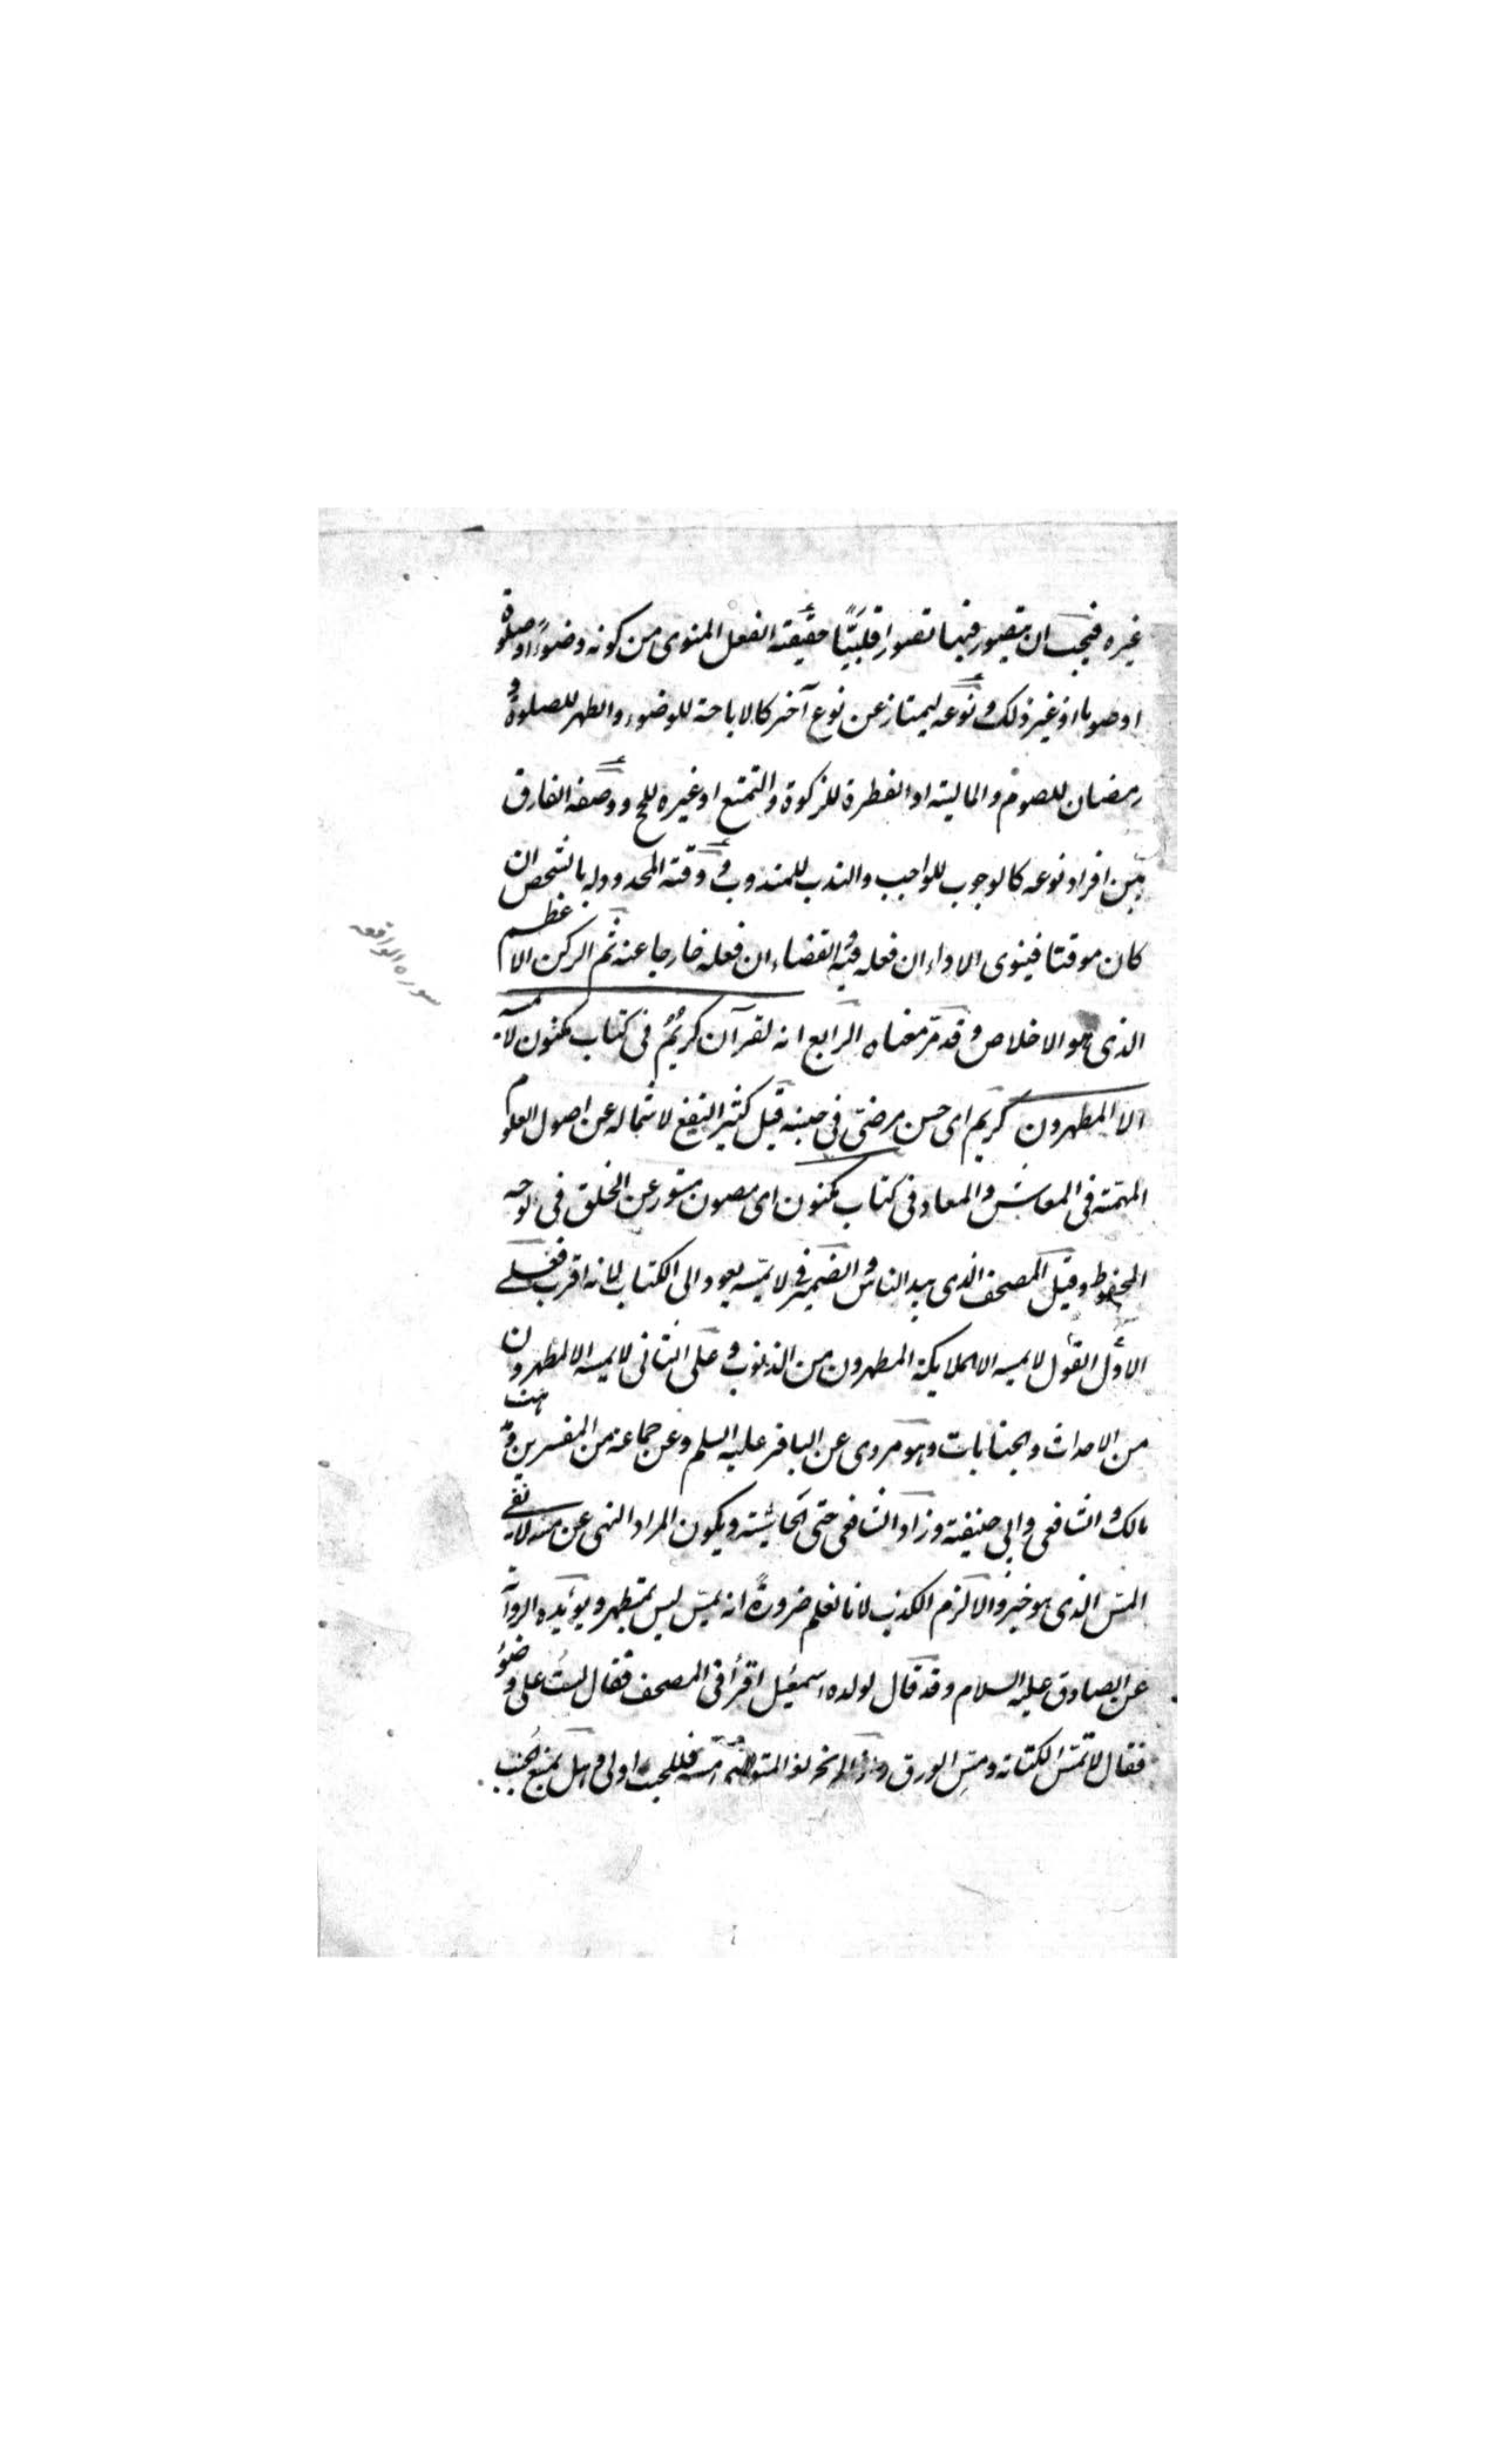 غيره فيجب ان يتصور فيها تصورا قلبيّا حقيقة الفعل المنوى من كونه وضوءً او صلوة
او صوما او غير ذلك و نوعه ليمتاز عن نوع آخر كالاباحة للوضوء والظهر للصلوة و
رمضان للصوم والمالية او الفطرة للزكوة والتمتع او غيره للحج ووصفه الفارق
بين افراد نوعه كالوجوب للواجب والندب للمندوب و وقته المحدود له بالشخص ان
كان موقتا فينوى الاداء ان فعله فيه و القضاء ان فعله خارجا عنه ثم الركن الاعظم
الذى هو الاخلاص و قد مرّ معناه الرابع انه لقرآن كريمٌ فى كتاب مكنون لا يمسه
الا المطهرون كريم اى حسن مرضىّ فى جنسه قيل كثير النفع لاشتماله عن اصول العلوم
المهمّة فى المعاش والمعاد فى كتاب مكنون اى مصون مستور عن الخلق فى لوحه
المحفوظ وقيل المصحف الذى بيد الناس و الضمير فى لا يمّسه يعود الى الكتاب لانه اقرب فعلى
الاوّل القول لا يمسه الا الملايكة المطهرون من الذنوب و على الثانى لا يمسه الا المطهرون
من الاحداث والجنابات وهو مروى عن الباقر عليه السلم وعن جماعة من المفسرين و مذهب
مالك و الشافعى و ابى حنيفة وزاد الشافعى حتى الحاشية و يكون المراد النهى عن مسه لا نفى
المسّ الذى هو خبر و الا لزم الكذب لانا نعلم ضرورةً انه يمسّ ليس بمتطهر و يؤيده الرواية
عن الصادق عليه السلام وقد قال لولده اسمعيل اقرأ فى المصحف فقال لست على وضوءٍ
فقال لا تمسّ الكتابة ومسّ الورق و اذا فللجنب اولى و هل يمنع الجنب
سورة الواقعه